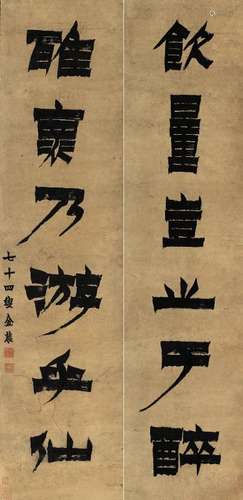 飲量豈止于醉
雅褱乃游乎仙
七十四叟金農